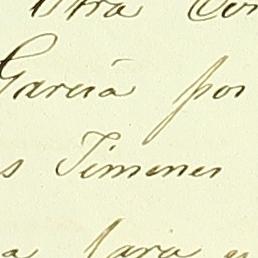 Otra Con
García por
s Jimenes
a para